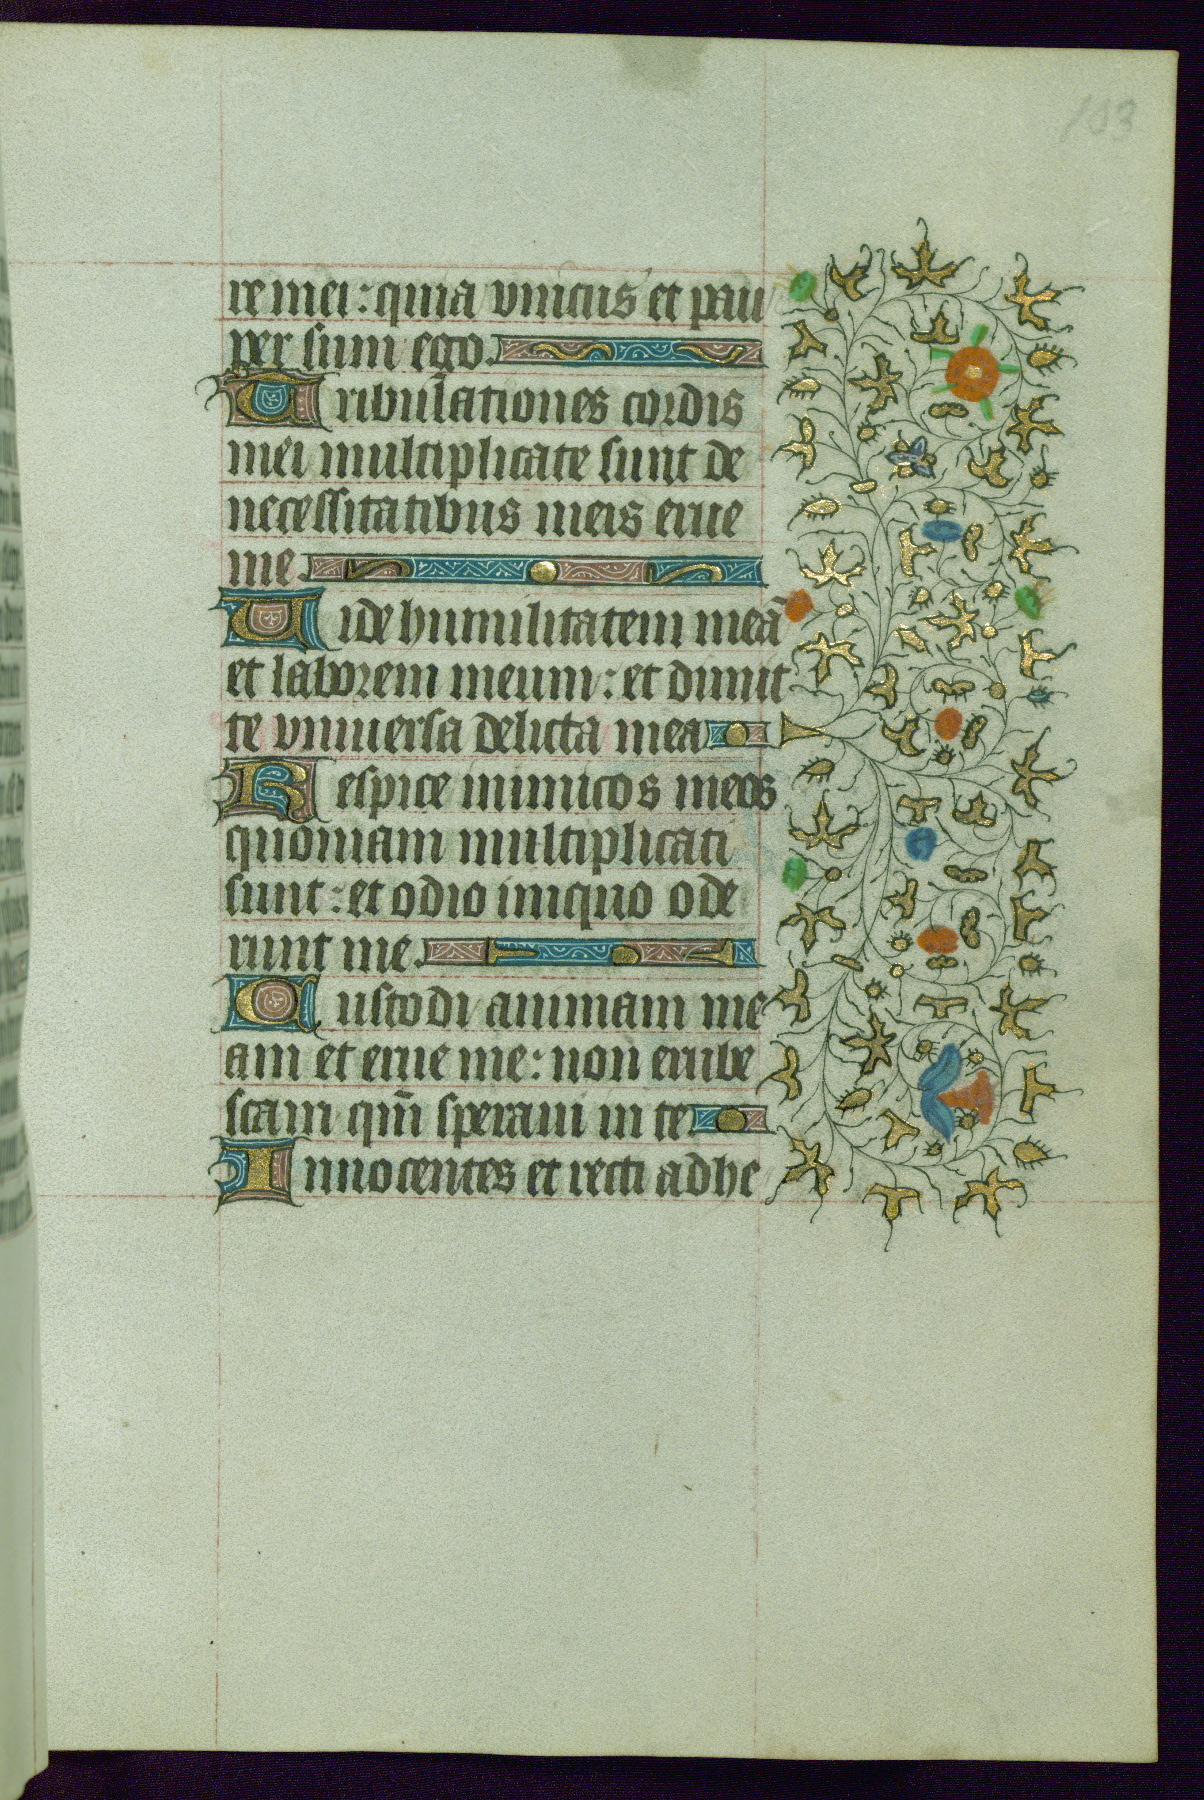 103
re mei : quia vnicus et pau
per sum ego.
Tribulationes cordis
mei multiplicate sunt de
necessitatibus meis erue
me.
Uide humilitatem meā
et laborem meum : et dimit
te vniuersa delicta mea
Respice inimicos meos
quoniam multiplicati
sunt : et odio iniquo ode
runt me.
Custodi animam me
am et erue me : non erube
scam qm̄ speraui in te
Innocentes et recti adhe